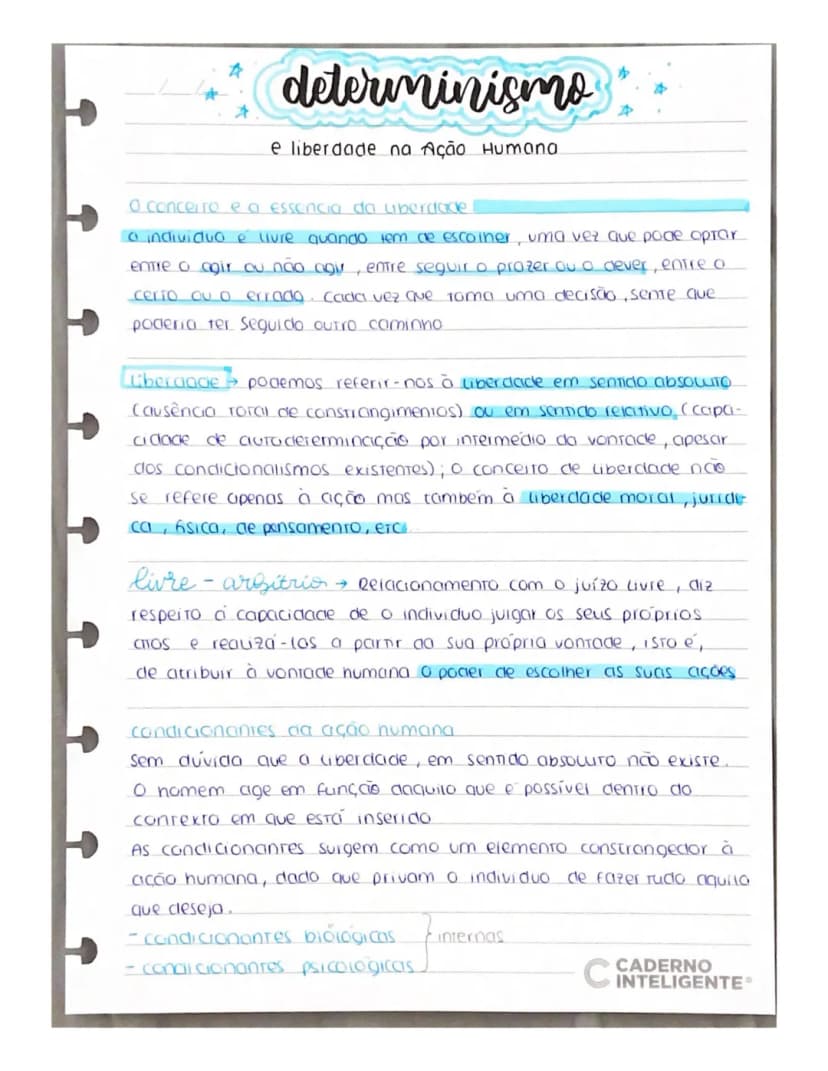 determinismo
e liberdade na Ação Humana
O conceito e a essência da liberdade
O individuo é livre quando tem de escolher, uma vez que pode optar
entre o agir ou não agir, entre seguir o prazer ou o dever, entre o
certo ou o errado. Cada vez que toma uma decisão, sente que
poderia ter seguido outro caminho
Liberdade → podemos referir-nos à liberdade em sentido absoluto
(ausência total de constrangimentos) ou em sentido relativo, (capa-
cidade de autodeterminação por intermédio da vontade, apesar
dos condicionalismos existentes); o conceito de liberdade não
se refere apenas à ação mas também à liberdade moral, juridi-
ca, física, de pensamento, etc.
livre-arbítrio → Relacionamento com o juízo livre, diz
respeito á capacidade de o individuo julgar os seus próprios
atos e realizá-los a partir da sua própria vontade, isto é,
de atribuir à vontade humana o poder de escolher as suas ações
condicionantes da ação humana
Sem dúvida que a liberdade, em sentido absoluto não existe.
O homem age em função daquilo que é possível dentro do
contexto em que está inserido
As condicionantes surgem como um elemento constrangedor à
ação humana, dado que privam o individuo de fazer tudo aquilo
que deseja.
- condicionantes biológicas } internas
- condicionantes psicológicas
CADERNO
INTELIGENTE®